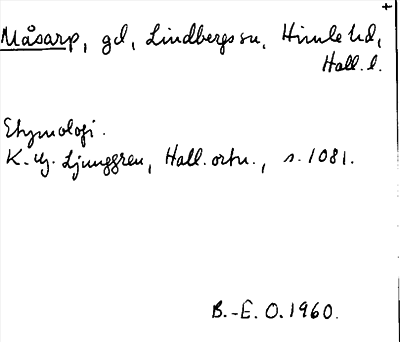 Måsarp, gd, Lindbergs sn, Himle hd,
Hall. l.
Etymologi.
K. G. Ljunggren, Hall. ortn., s. 1081.
B.-E. O. 1960.